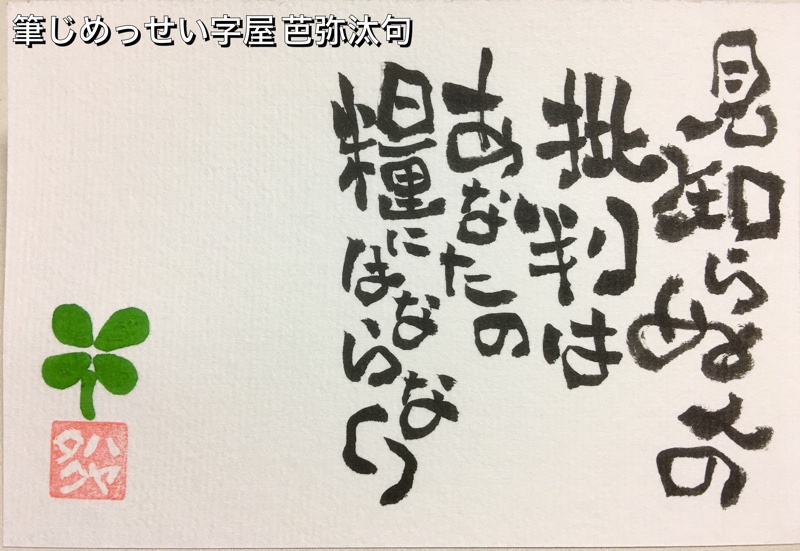 筆じめっせい字屋 芭弥汰句
見知らぬ人の
批判は
あなたの
糧にはならない
ハヤ
タク